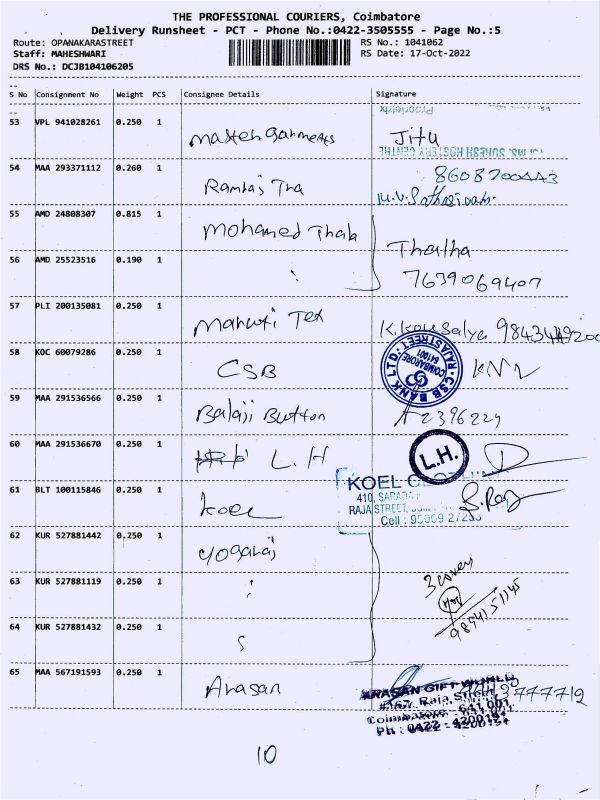 THE PROFESSIONAL COURIERS, Coimbatore
Delivery Runsheet - PCT - Phone No.:0422-3505555 - Page No.:5
Route: OPANAKARASTREET
RS No.: 1041062
Staff: MAHESHWARI
RS Date: 17-Oct-2022
DRS No.: DCJB104106205
S No Consignment No Weight PCS Consignee Details Signature
53 VPL 941028261 0.250 1 Jitu
54 MAA 293371112 0.260 1 Ramraj
55 AMD 24808307 0.815 1 Mohamed Thalha
56 AMD 25523516 0.190 1 Thalha
7639069407
57 PLI 200135081 0.250 1 Maruti Tex K. Kousalya
58 KOC 60079286 0.250 1 CSB
CSB BANK LTD. RAJA STREET COIMBATORE 641001
59 MAA 291536566 0.250 1 Balaji Button
60 MAA 291536670 0.250 1 L.H L.H.
61 BLT 100115846 0.250 1 Koel
KOEL
410,
RAJA STREET,
Cell :
62 KUR 527881442 0.250 1 yogaraj
63 KUR 527881119 0.250 1 3 covers
64 KUR 527881432 0.250 1
65 MAA 567191593 0.250 1 Arasan
ARASAN GIFT WORLD
Raja Street
Coimbatore - 641 001
Ph : 0422 - 4200191
10